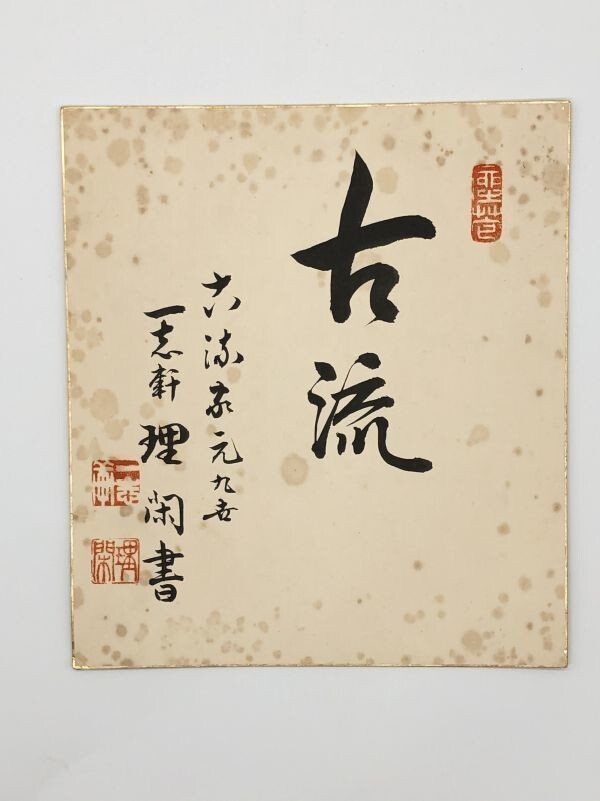 古流
古流家元九世
一志軒 理閑書